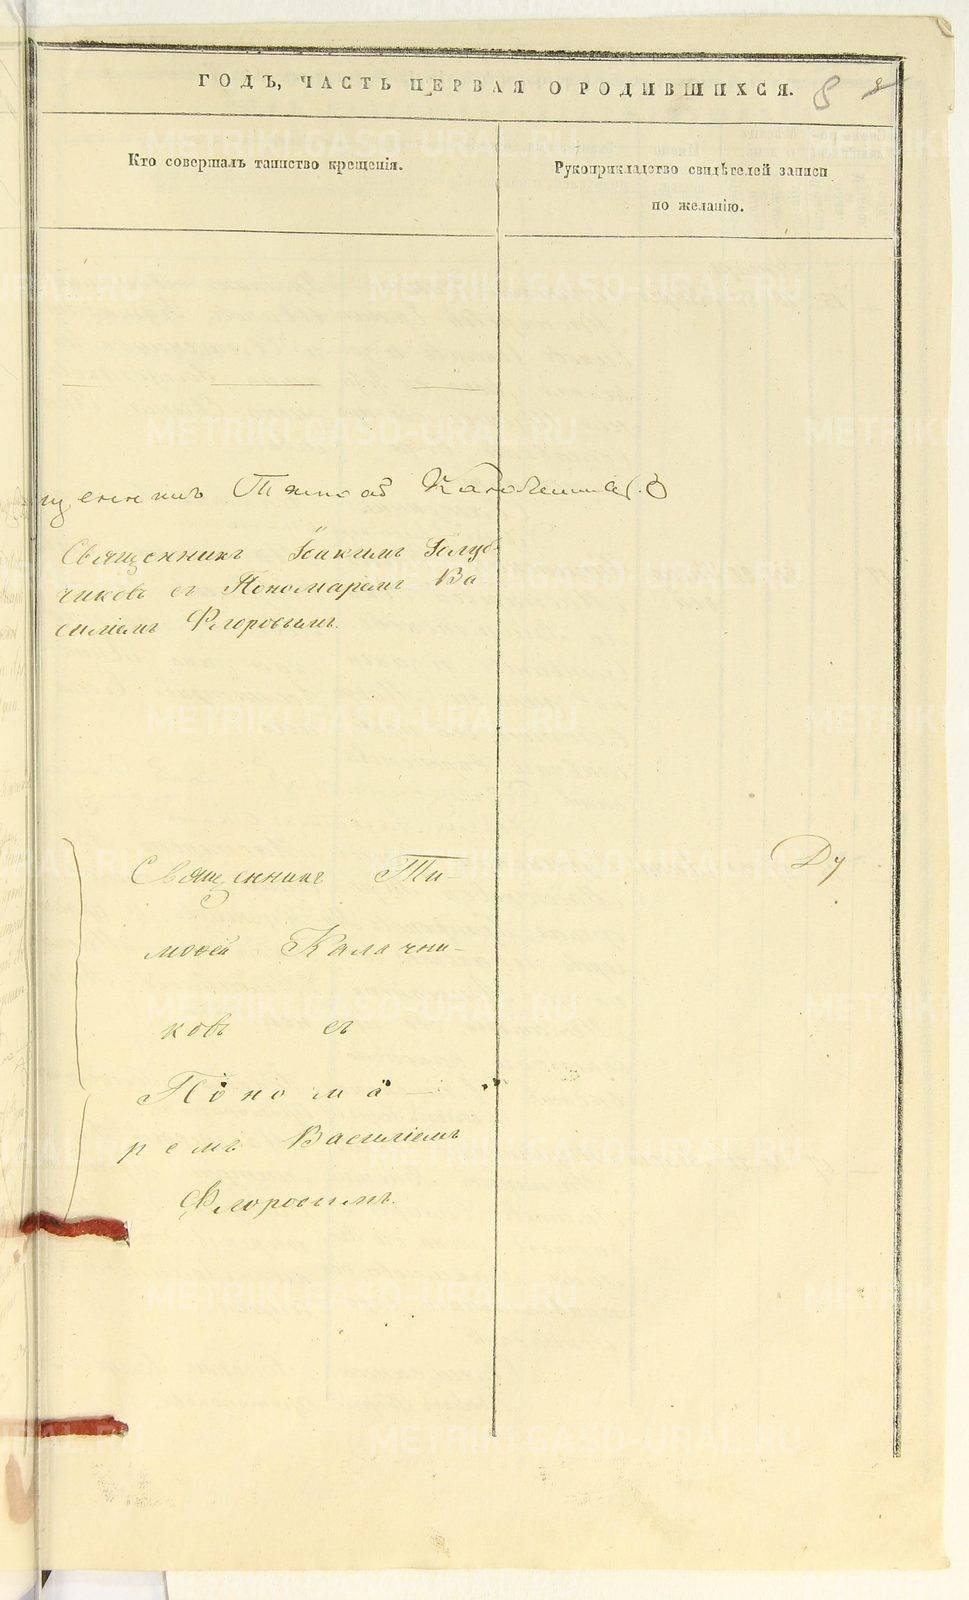 ГОДЪ, ЧАСТЬ ПЕРВАЯ О РОДИВШИХСЯ. 8
Кто совершалъ таинство крещенія.
Рукоприкладство свидѣтелей записи
по желанію.
щенникъ Тимоѳей Калачниковъ
Священникъ Іоакимъ Голуб-
чиковъ съ Пономаремъ Ва
силіемъ Флоровымъ.
Священникъ Ти-
моѳей Калачни-
ковъ съ
Понома-
ремъ Василіемъ
Флоровымъ.
Ду
METRIKI.GASO-URAL.RU